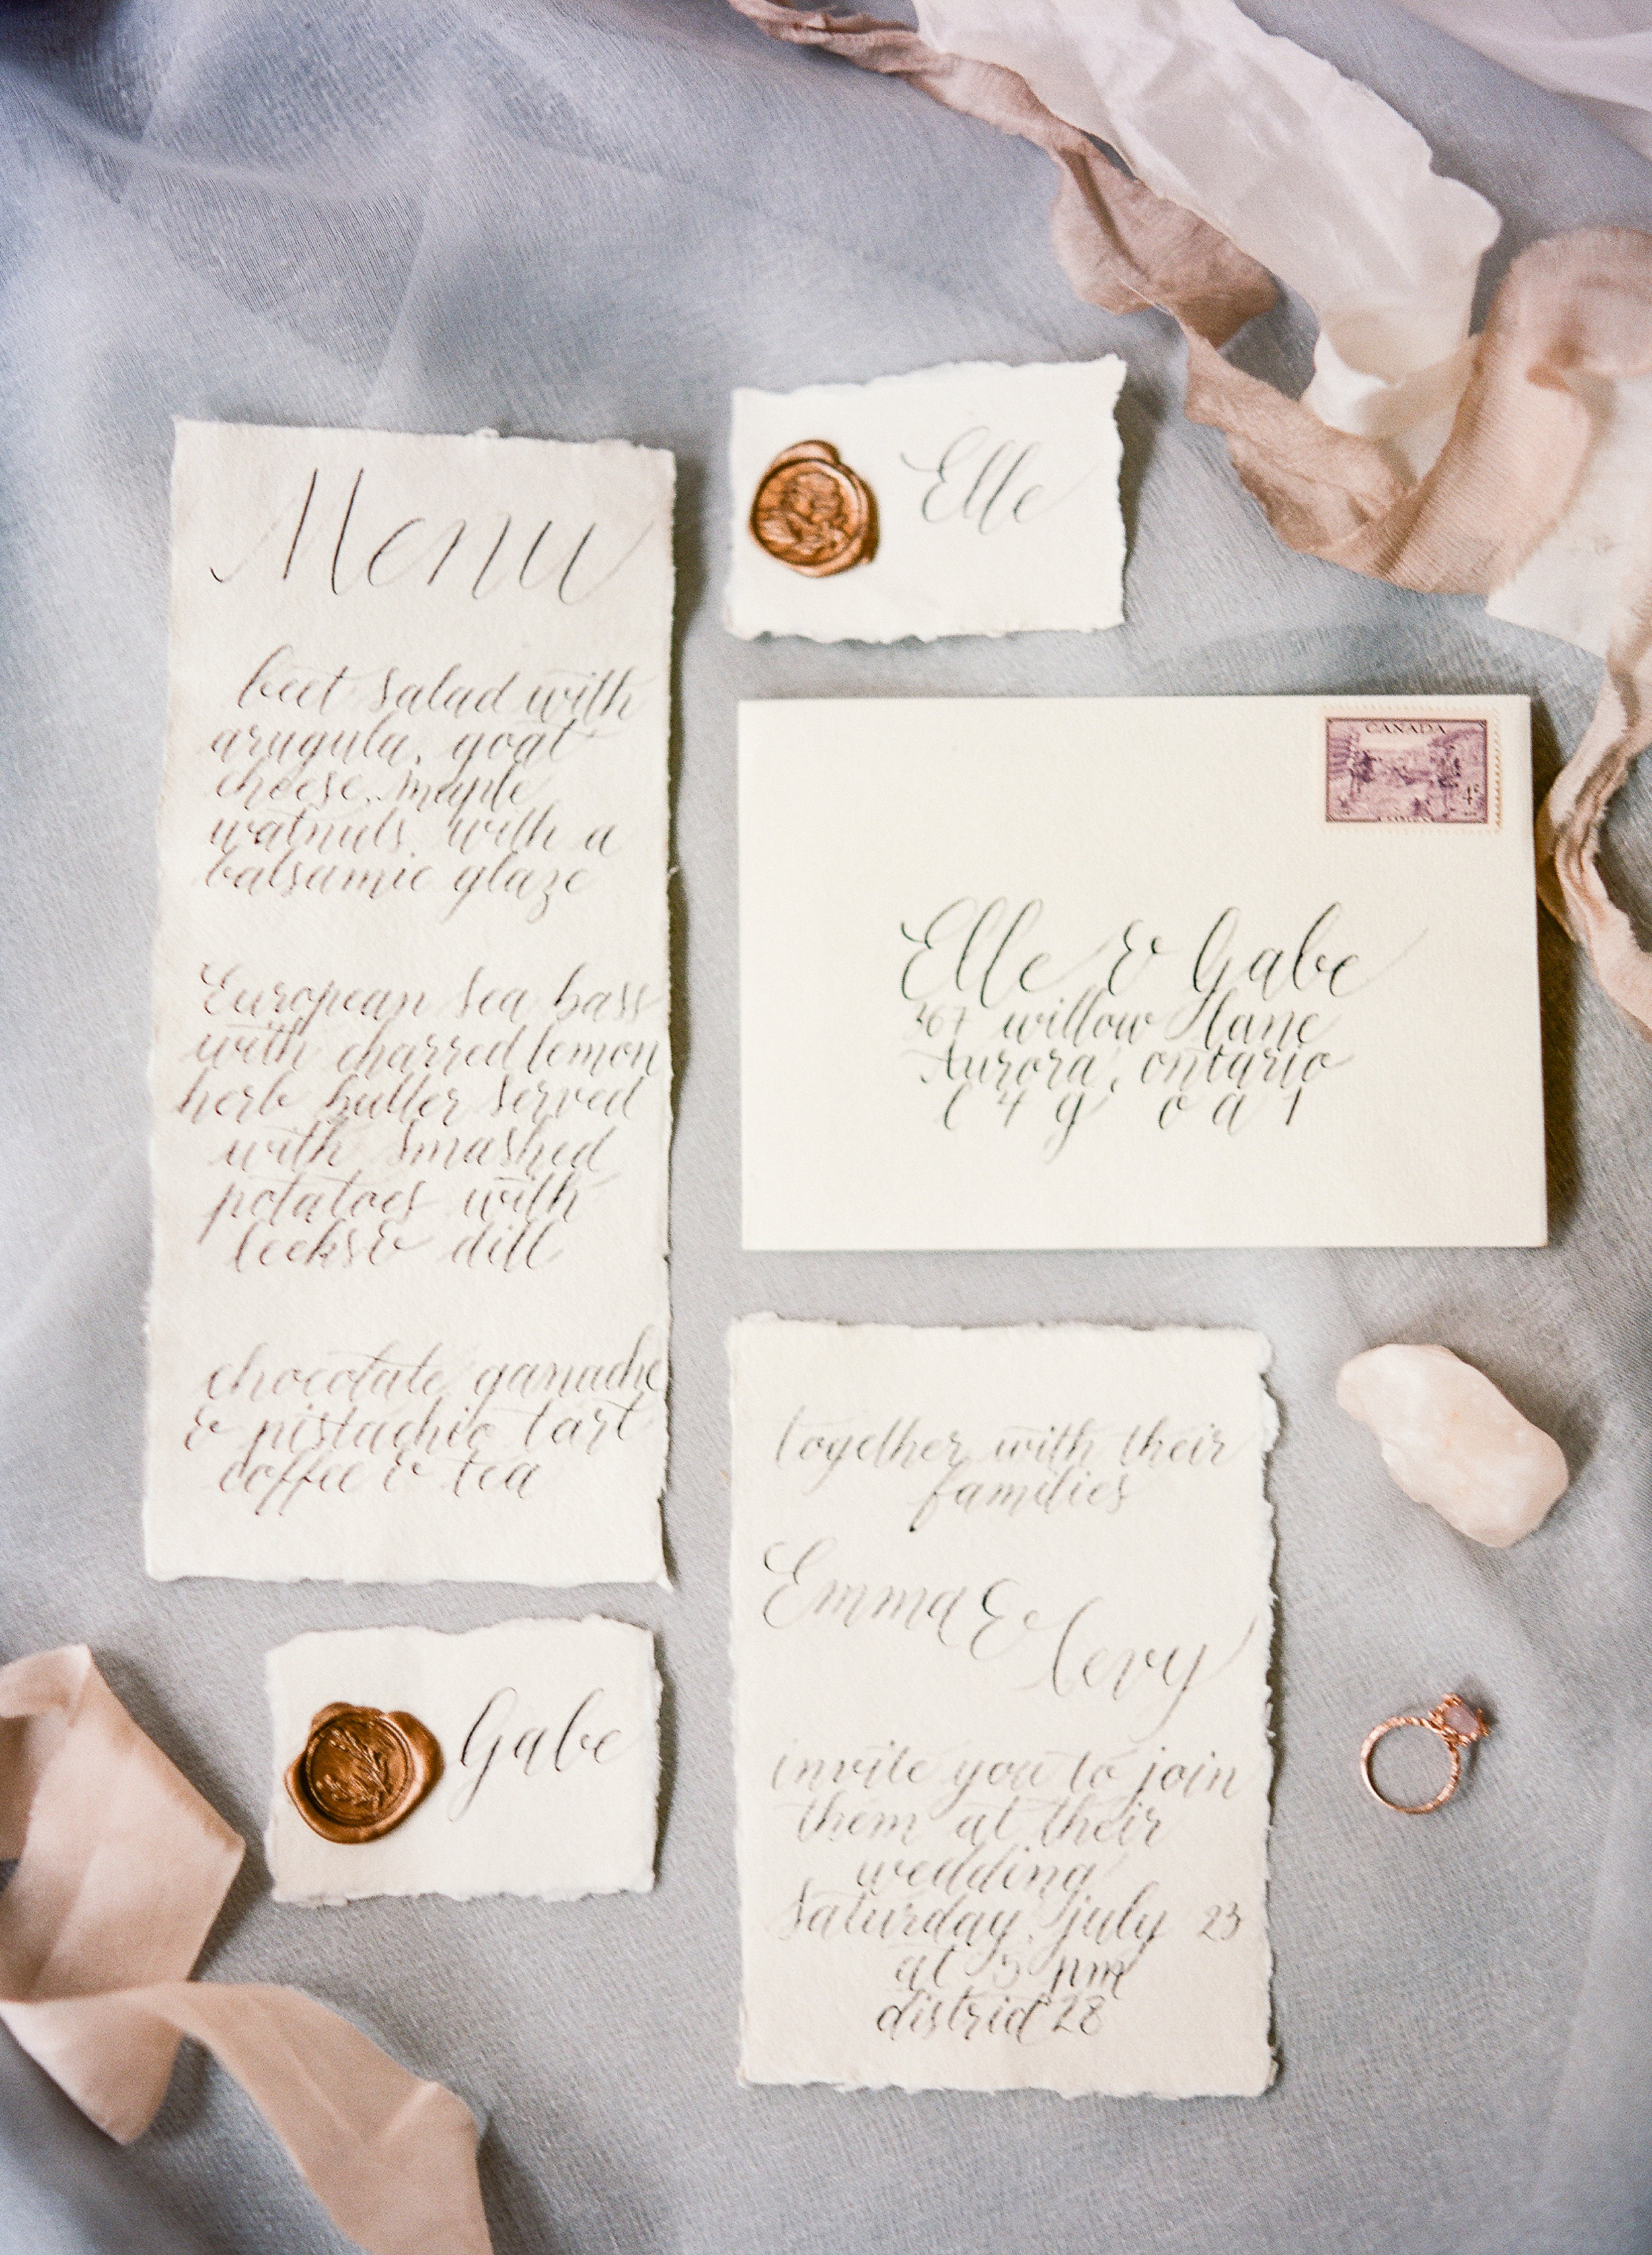 Menu
beet salad with
arugula, goat
cheese, maple
walnuts, with a
balsamic glaze
European sea bass
with charred lemon
herb butter served
with smashed
potatoes with
leeks & dill
chocolate ganache
& pistachio tart
coffee & tea
Elle
CANADA
4¢
Elle & Gabe
367 willow lane
Aurora, ontario
l 4 g o a 1
together with their
families
Emma & Levy
invite you to join
them at their
wedding
Saturday, july 23
at 5 pm
district 28
Gabe